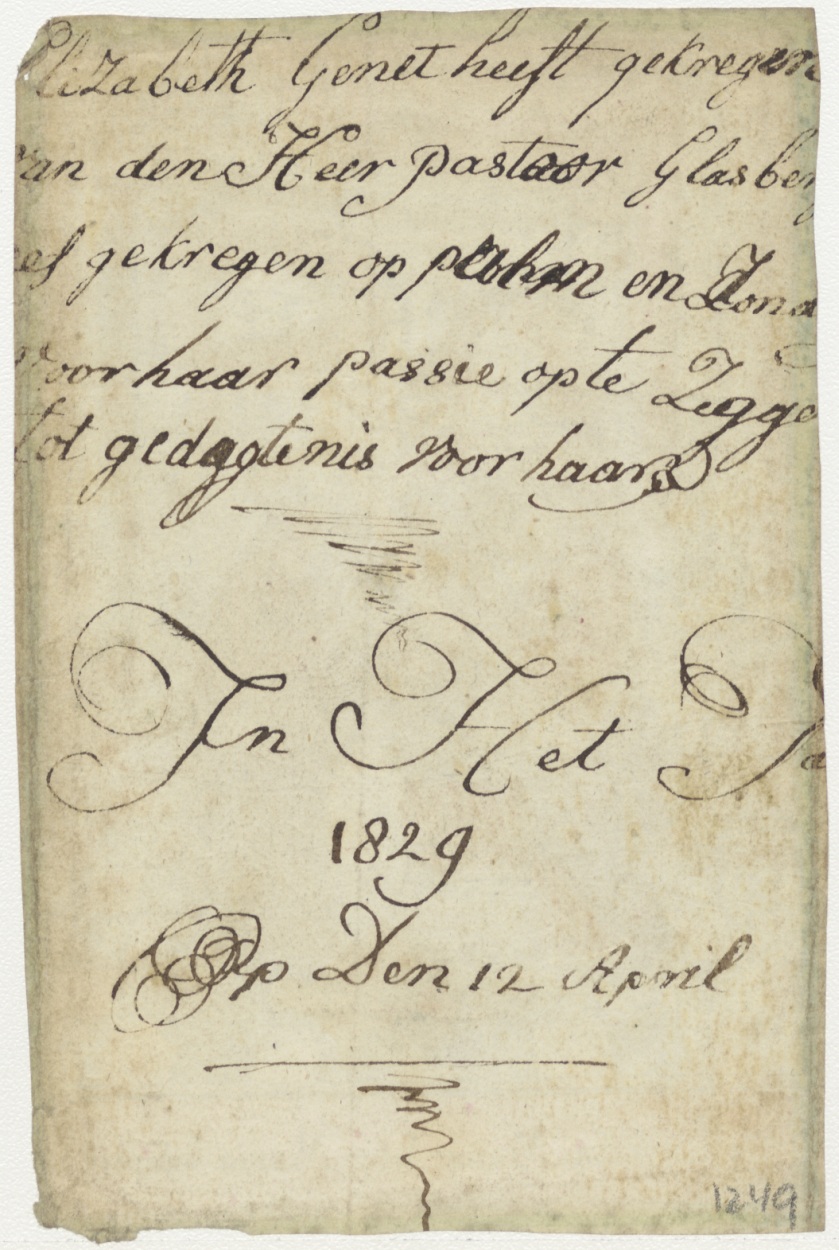 Elizabeth Genet heeft gekregen
van den Heer pastoor Glasber
gekregen op palm en Zond
voor haar passie op te Zegge
tot gedagtenis voor haar
In Het Ja
1829
Op Den 12 April
1249